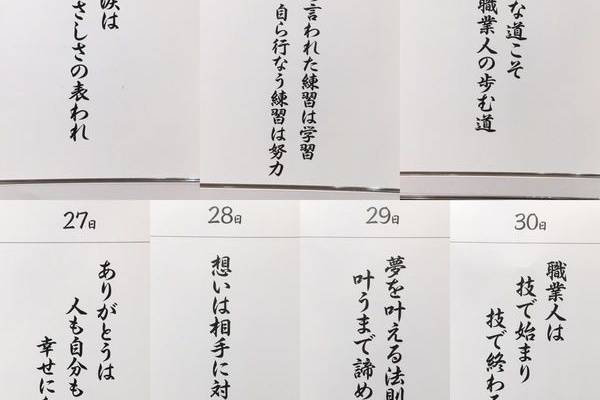 涙は
さしさの表われ
言われた練習は学習
自ら行なう練習は努力
な道こそ
職業人の歩む道
27日
ありがとうは
人も自分も
幸せに
28日
想いは相手に対
29日
夢を叶える法則
叶うまで諦め
30日
職業人は
技で始まり
技で終わる